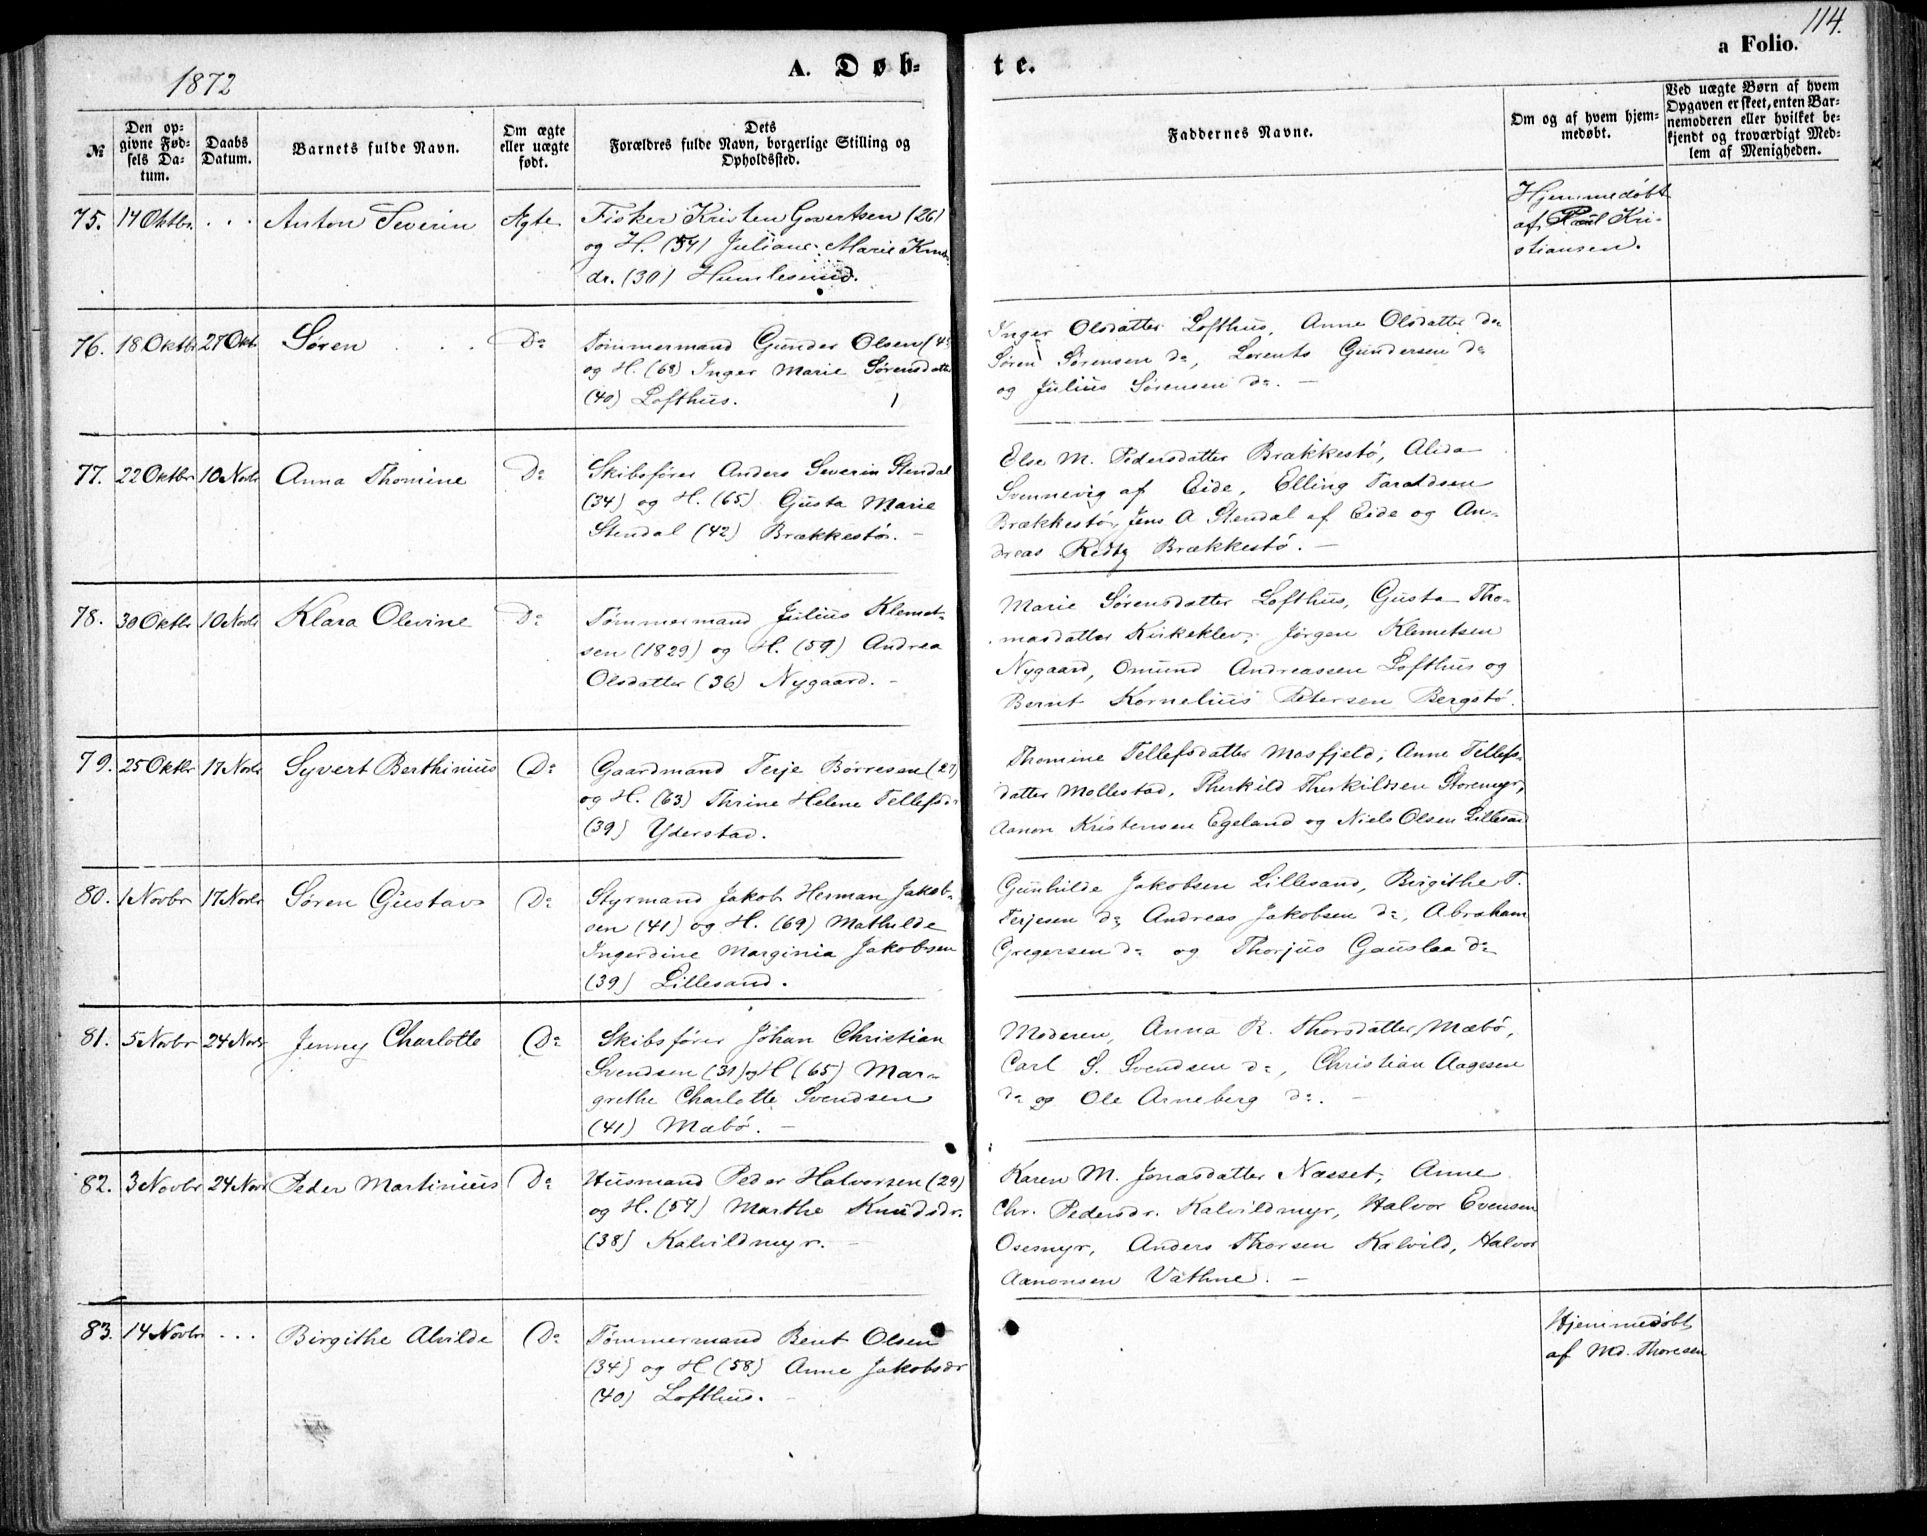 114.
1872
A. Døb-
te.
a Folio.
№
Den op-
givne Fød-
sels Da-
tum.
Daabs
Datum.
Barnets fulde Navn.
Om ægte
eller uægte
født.
Dets
Forældres fulde Navn, borgerlige Stilling og
Opholdssted.
Faddernes Navne.
Om og af hvem hjem-
medøbt.
Ved uægte Børn af hvem
Opgaven er skeet, enten Bar-
nemoderen eller hvilket be-
kjendt og troværdigt Med-
lem af Menigheden.
75. 17 Oktbr. . . Anton Severin Ægte Fisker Kristen Govertsen (26)
og H. (54) Juliane Marie Knuds-
dr. (30) Humlesund.
Hjemmedøbt
af Paul Kri-
stiansen.
76. 18 Oktbr 27 Okt. Søren . . . Do Tømmermand Gunder Olsen
og H. (68) Inger Marie Sørensdatter
(40) Lofthus.
Inger Olsdatter Lofthus, Anne Olsdatter do
Søren Sørensen do, Lorents Gundersen do
og Julius Sørensen do. –
77. 22 Oktbr 10 Novbr Anna Thomine Do Skibsfører Anders Severin Stendal
(34) og H. (65) Gusta Marie
Stendal (42) Brækkestø. –
Else M. Pedersdatter Brækkestø, Alida
Svennevig af Eide, Elling Taraldsen
Brækkestø, Jens A Stendal af Eide og An-
dreas Brækkestø. –
78. 30 Oktbr 10 Novbr Klara Olevine Do Tømmermand Julius Klemet-
sen (1829) og H. (59) Andrea
Olsdatter (36) Nygaard. –
Marie Sørensdatter Lofthus, Gusta Tho-
masdatter Kirkeklev, Jørgen Klemetsen
Nygaard, Omund Andreassen Lofthus og
Bernt Kornelius Petersen Bergstø.
79. 25 Oktbr 17 Novbr Syvert Berthinius Do Gaardmand Terje Børresen (27)
og H. (63) Thrine Helene Tellefsdr
(39) Yderstad.
Thomine Tellefsdatter Mosfjeld, Anne Tellefs-
datter Mollestad, Therkild Therkildsen Storemyr,
Aanon Kristensen Egeland og Niels Olsen Lillesand
80. 1 Novbr 17 Novbr Søren Gustav Do Styrmand Jakob Herman Jakob-
sen (41) og H. (69) Mathilde
Ingerdine Marginia Jakobsen
(39) Lillesand.
Gunhilde Jakobsen Lillesand, Birgithe T.
Terjesen do, Andreas Jakobsen do, Abraham
Gregersen do og Thorjus Gauslaa do
81. 5 Novbr 24 Novbr Jenny Charlotte Do Skibsfører Johan Christian
Svendsen (31) og H (65) Mar-
grethe Charlotte Svendsen
(41) Mæbø. –
Moderen, Anna R. Thorsdatter Mæbø,
Carl S. Svendsen do, Christian Aagesen
do og Ole Arneberg do. –
82. 3 Novbr 24 Novr Peder Martinius Do Husmand Peder Halvorsen (29)
og H. (57) Marthe Knudsdr.
(38) Kalvildmyr. –
Karen M. Jonasdatter Næsset, Anne
Chr. Pedersdr. Kalvildmyr, Halvor Evensen
Osesmyr, Anders Thorsen Kalvild, Halvor
Aanonsen Vathne. –
83. 14 Novbr . . . Birgithe Alvilde Do Tømmermand Bent Olsen
(34) og H (58) Anne Jakobsdr
(40) Lofthus. –
Hjemmedøbt
af Md. Thoresen